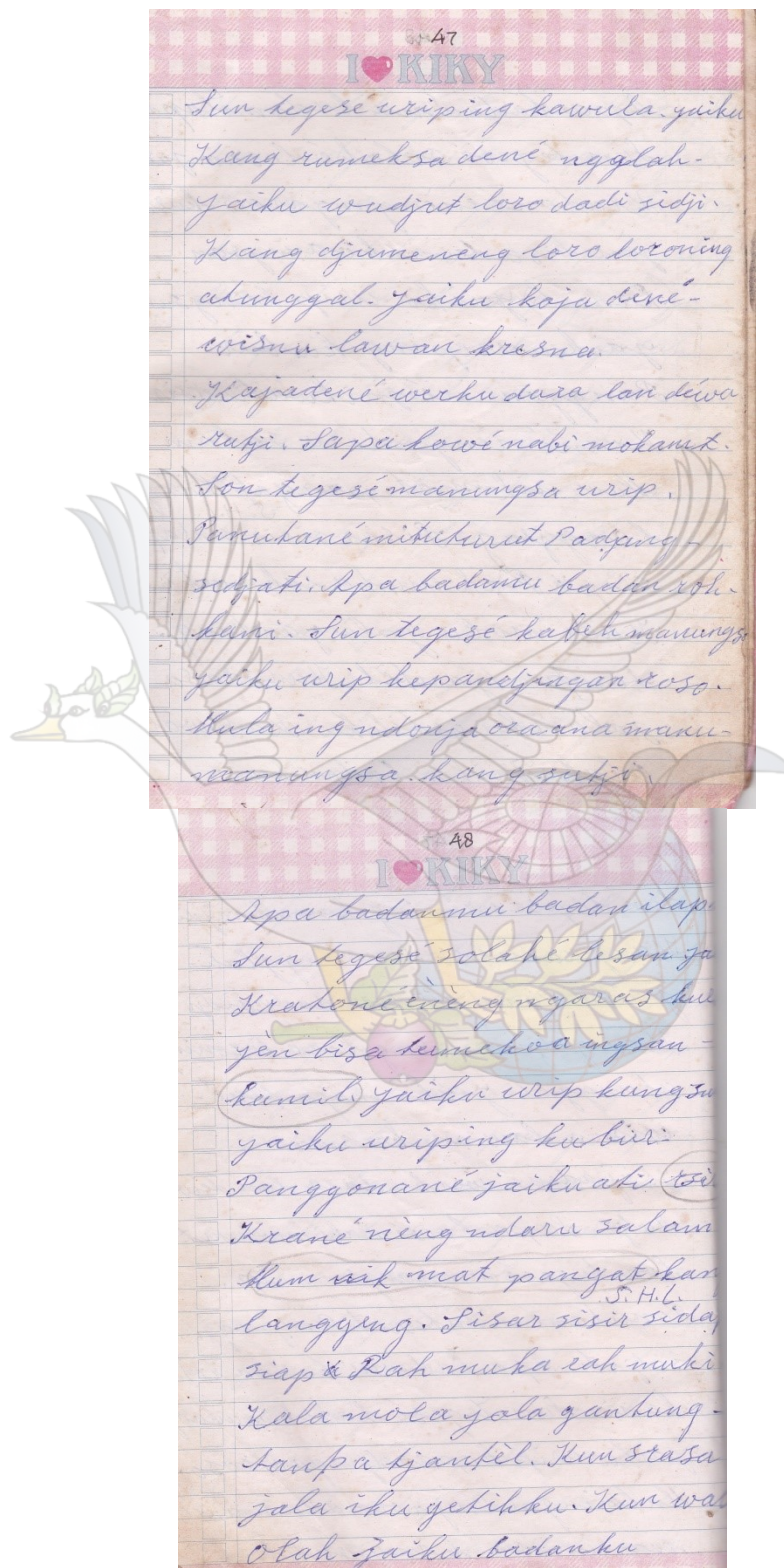 47
I KIKY
Sun tegese uriping kawula. yaiku
Kang rumeksa dené ngglah-
yaiku wudjut loro dadi sidji.
Kang djumenèng loro loroning
atunggal. yaiku koja dené-
wisnu lawan kresna.
Kajadené werku dara lan déwa
rutji. Sapa kowé nabi mokamt.
Son tegesé manungsa urip.
Panutané mituturut Padjang-
sedjati. Apa badamu badan roh-
kani. Sun tegesé kabeh manungsa
yaiku urip kepandjingan roso.
Mula ing ndonja ora ana manu-
manungsa. kang sutji.
48
I KIKY
Apa badanmu badan ilap
Sun tegesé solahé lesan ja
Kratoné enèng ngaras
jèn bisa tumeka ingsan-
kamil. yaiku urip kang su
yaiku uriping kubur.
Panggonané jaiku ati tsir
Krané nèng ndaru salam
Mum mat pangat kan
S.H.L.
langgeng. Sisar sisir sida
siap Rah muha rah muki
Kala mola jola gantung-
tanpa tjantèl. Kun srasa
jala iku getihku. Kun wal
olah jaiku badanku